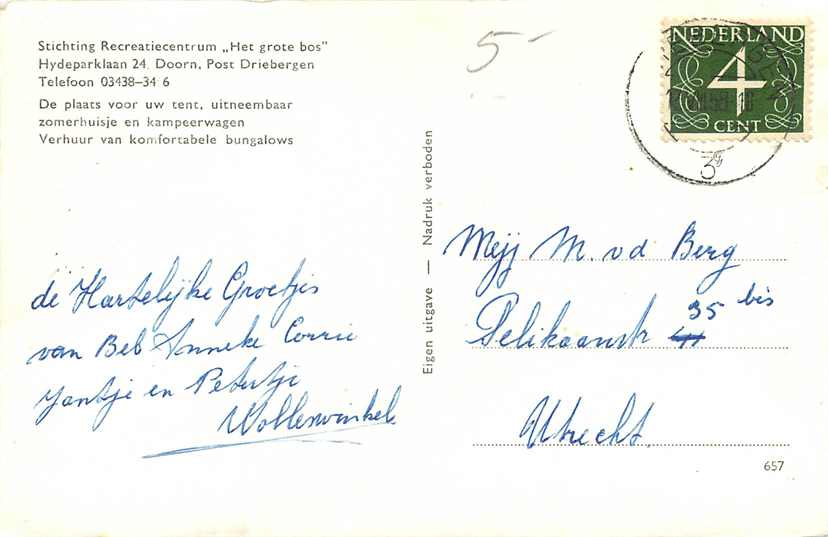 Stichting Recreatiecentrum „Het grote bos"
Hydeparklaan 24, Doorn, Post Driebergen
Telefoon 03438-34 6
De plaats voor uw tent, uitneembaar
zomerhuisje en kampeerwagen
Verhuur van komfortabele bungalows
de Hartelijke Groetjes
van Beb Anneke Corrie
Jantje en Petertje
Wollenwinkel
Eigen uitgave — Nadruk verboden
5-
NEDERLAND
4
CENT
Mejj M. vd Berg
Pelikaanstr 35 bis
Utrecht
657